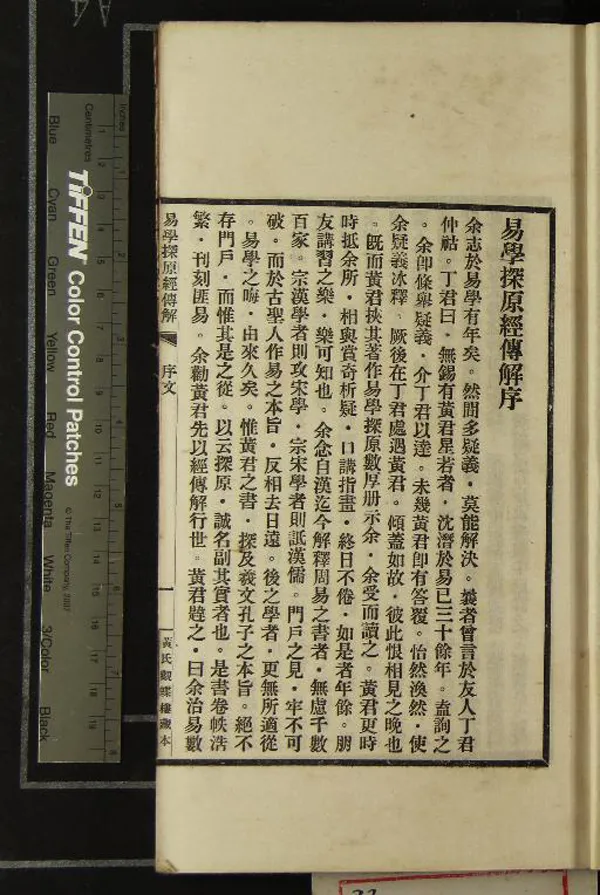 易學探原經傳解序
余志於易學有年矣。然間多疑義，莫能解決。曩者曾言於友人丁君
仲祜。丁君曰，無錫有黃君星若者，沈潛於易已三十餘年。盍詢之
。余卽條舉疑義，介丁君以達。未幾黃君卽有答覆。怡然渙然，使
余疑義冰釋。厥後在丁君處遇黃君。傾蓋如故，彼此恨相見之晚也
。旣而黃君挾其著作易學探原數厚册示余，余受而讀之。黃君更時
時抵余所，相與賞奇析疑，口講指畫，終日不倦，如是者年餘。朋
友講習之樂，樂可知也。余念自漢迄今解釋周易之書者，無慮千數
百家。宗漢學者則攻宋學，宗宋學者則詆漢儒。門戶之見，牢不可
破。而於古聖人作易之本旨，反相去日遠。後之學者，更無所適從
。易學之晦，由來久矣。惟黃君之書，探及羲文孔子之本旨。絕不
存門戶，而惟其是之從。以云探原，誠名副其實者也。是書卷帙浩
繁，刊刻匪易。余勸黃君先以經傳解行世。黃君韙之，曰余治易數
易學探原經傳解 序文 一 黃氏觀蝶樓藏本
Inches
Centimetres
1 2 3 4 5 6 7 8
1 2 3 4 5 6 7 8 9 10 11 12 13 14 15 16 17 18 19
TIFFEN Color Control Patches
© The Tiffen Company, 2007
Blue Cyan Green Yellow Red Magenta White 3/Color Black
A4